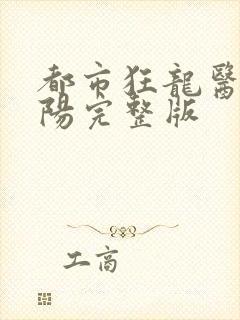 都市狂龍醫
陽完整版
工商